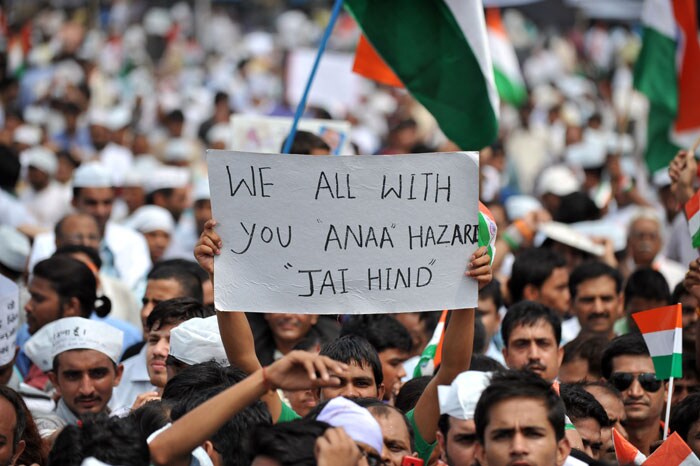 WE ALL WITH
YOU "ANAA" HAZARI
"JAI HIND"